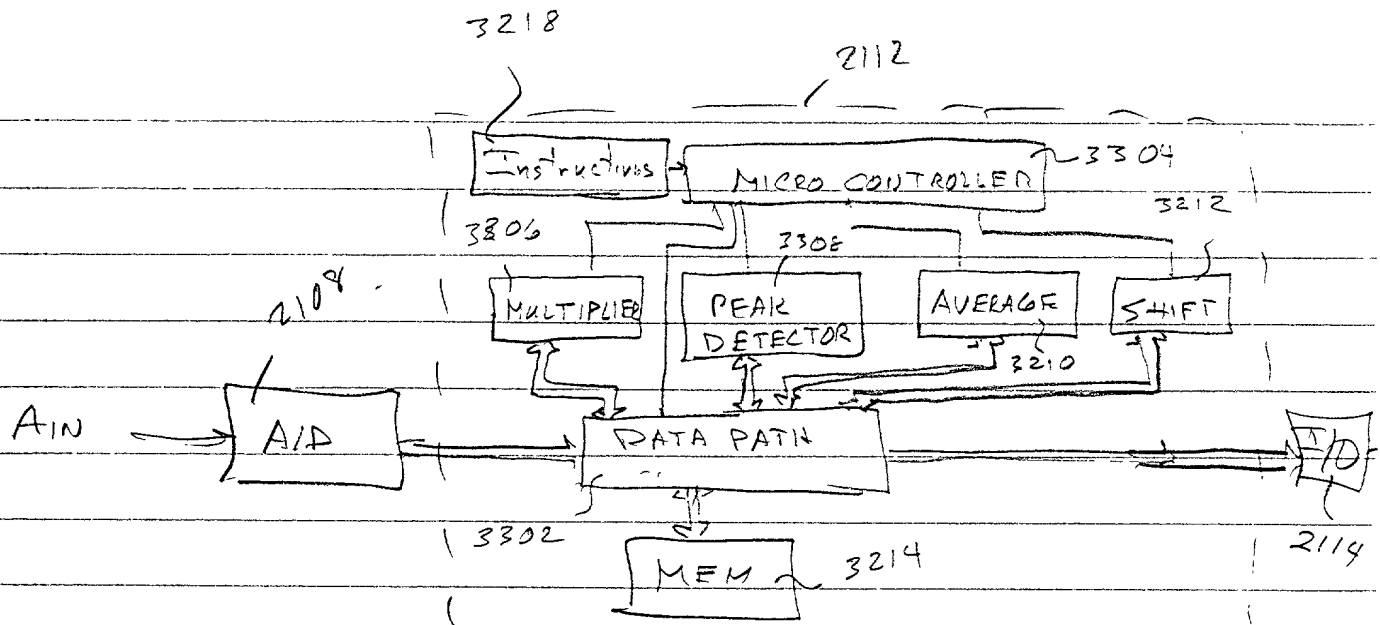 3218
2112
Instructions
MICRO CONTROLLER
3304
3212
3306
3308
2108
MULTIPLIER
PEAK
DETECTOR
AVERAGE
SHIFT
3210
AIN
A/D
DATA PATH
I/O
3302
2114
MEM
3214